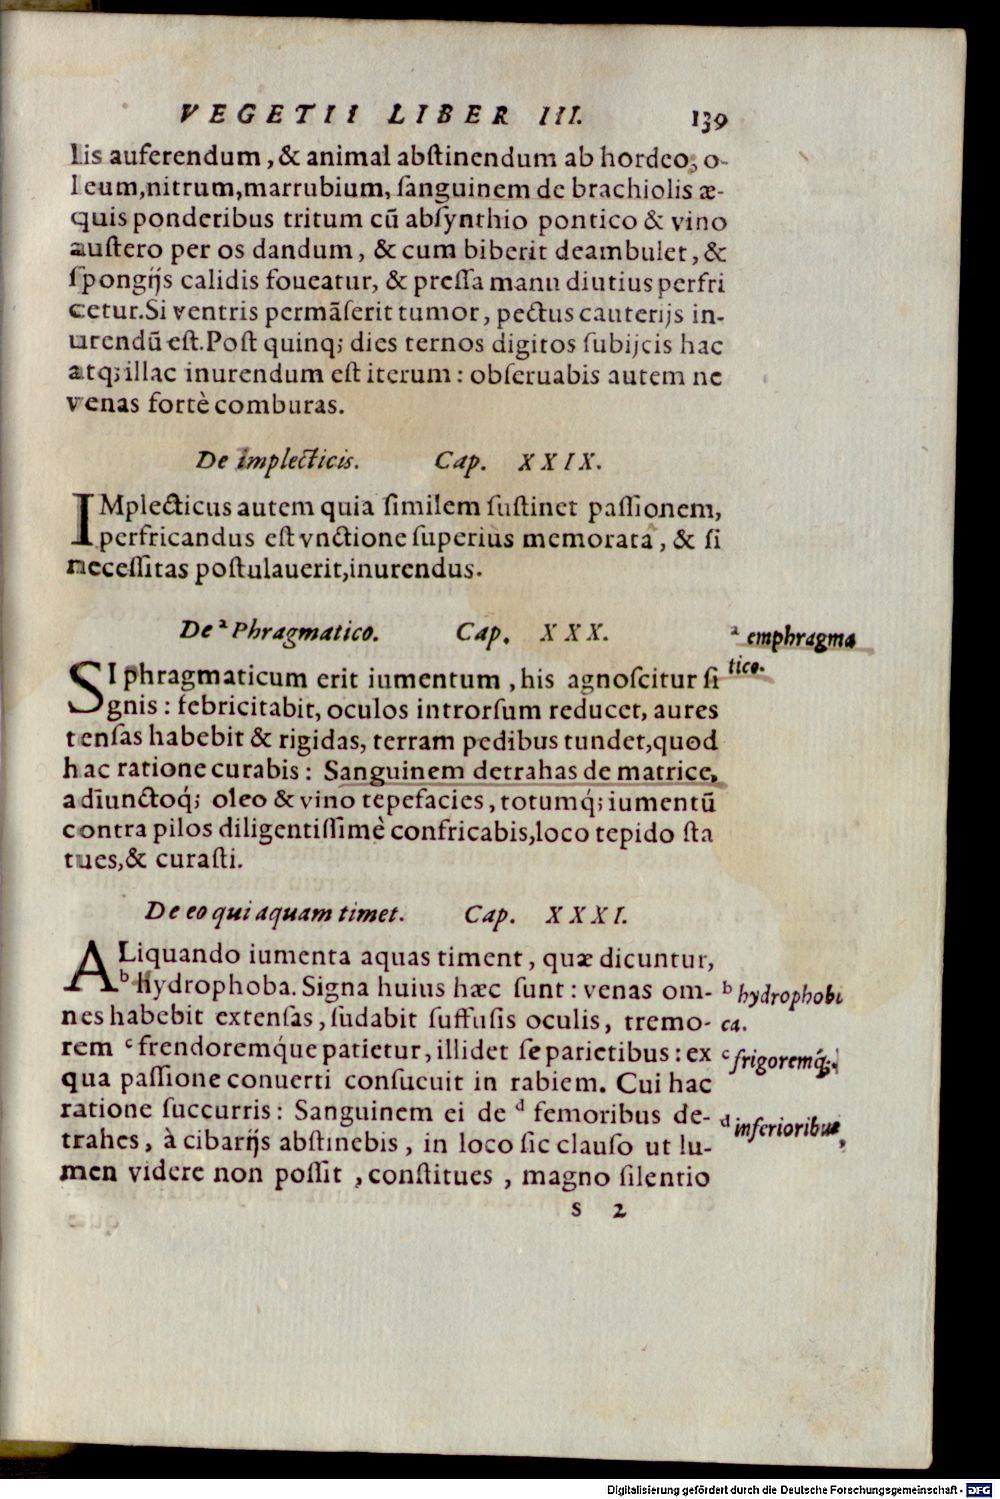 VEGETII LIBER III. 139
lis auferendum, & animal abstinendum ab hordeo, o-
leum, nitrum, marrubium, sanguinem de brachiolis æ-
quis ponderibus tritum cũ absynthio pontico & vino
austero per os dandum, & cum biberit deambulet, &
spongijs calidis foueatur, & pressa manu diutius perfri
cetur. Si ventris permãserit tumor, pectus cauterijs in-
urendũ est. Post quinq; dies ternos digitos subijcis hac
atq; illac inurendum est iterum: obseruabis autem ne
venas fortè comburas.
De implecticis. Cap. XXIX.
IMplecticus autem quia similem sustinet passionem,
perfricandus est vnctione superius memorata, & si
necessitas postulauerit, inurendus.
De ᵃ Phragmatico. Cap. XXX.
ᵃ emphragma
tico.
SI phragmaticum erit iumentum, his agnoscitur si
gnis: febricitabit, oculos introrsum reducet, aures
tensas habebit & rigidas, terram pedibus tundet, quod
hac ratione curabis: Sanguinem detrahas de matrice,
adiunctoq́; oleo & vino tepefacies, totumq́; iumentũ
contra pilos diligentissimè confricabis, loco tepido sta
tues, & curasti.
De eo qui aquam timet. Cap. XXXI.
ALiquando iumenta aquas timent, quæ dicuntur,
ᵇ Hydrophoba. Signa huius hæc sunt: venas om-
ᵇ hydrophobi
nes habebit extensas, sudabit suffusis oculis, tremo-
ca.
rem ᶜ frendoremq́ue patietur, illidet se parietibus: ex
ᶜ frigoremq́;
qua passione conuerti consueuit in rabiem. Cui hac
ratione succurris: Sanguinem ei de ᵈ femoribus de-
ᵈ inferioribus,
trahes, à cibarijs abstinebis, in loco sic clauso ut lu-
men videre non possit, constitues, magno silentio
s 2
Digitalisierung gefördert durch die Deutsche Forschungsgemeinschaft - DFG